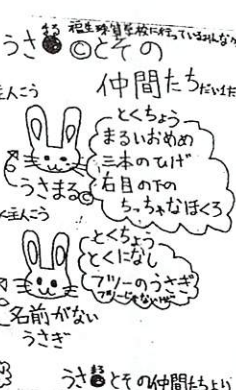 うさ○©とその
仲間たち
主人こう
とくちょう
まるいおめめ
三本のひげ
右目の下の
ちっちゃなほくろ
うさまる©
主人こう
とくちょう
とくになし
フツーのうさぎ
名前がない
うさぎ
うさ○とその仲間たちより